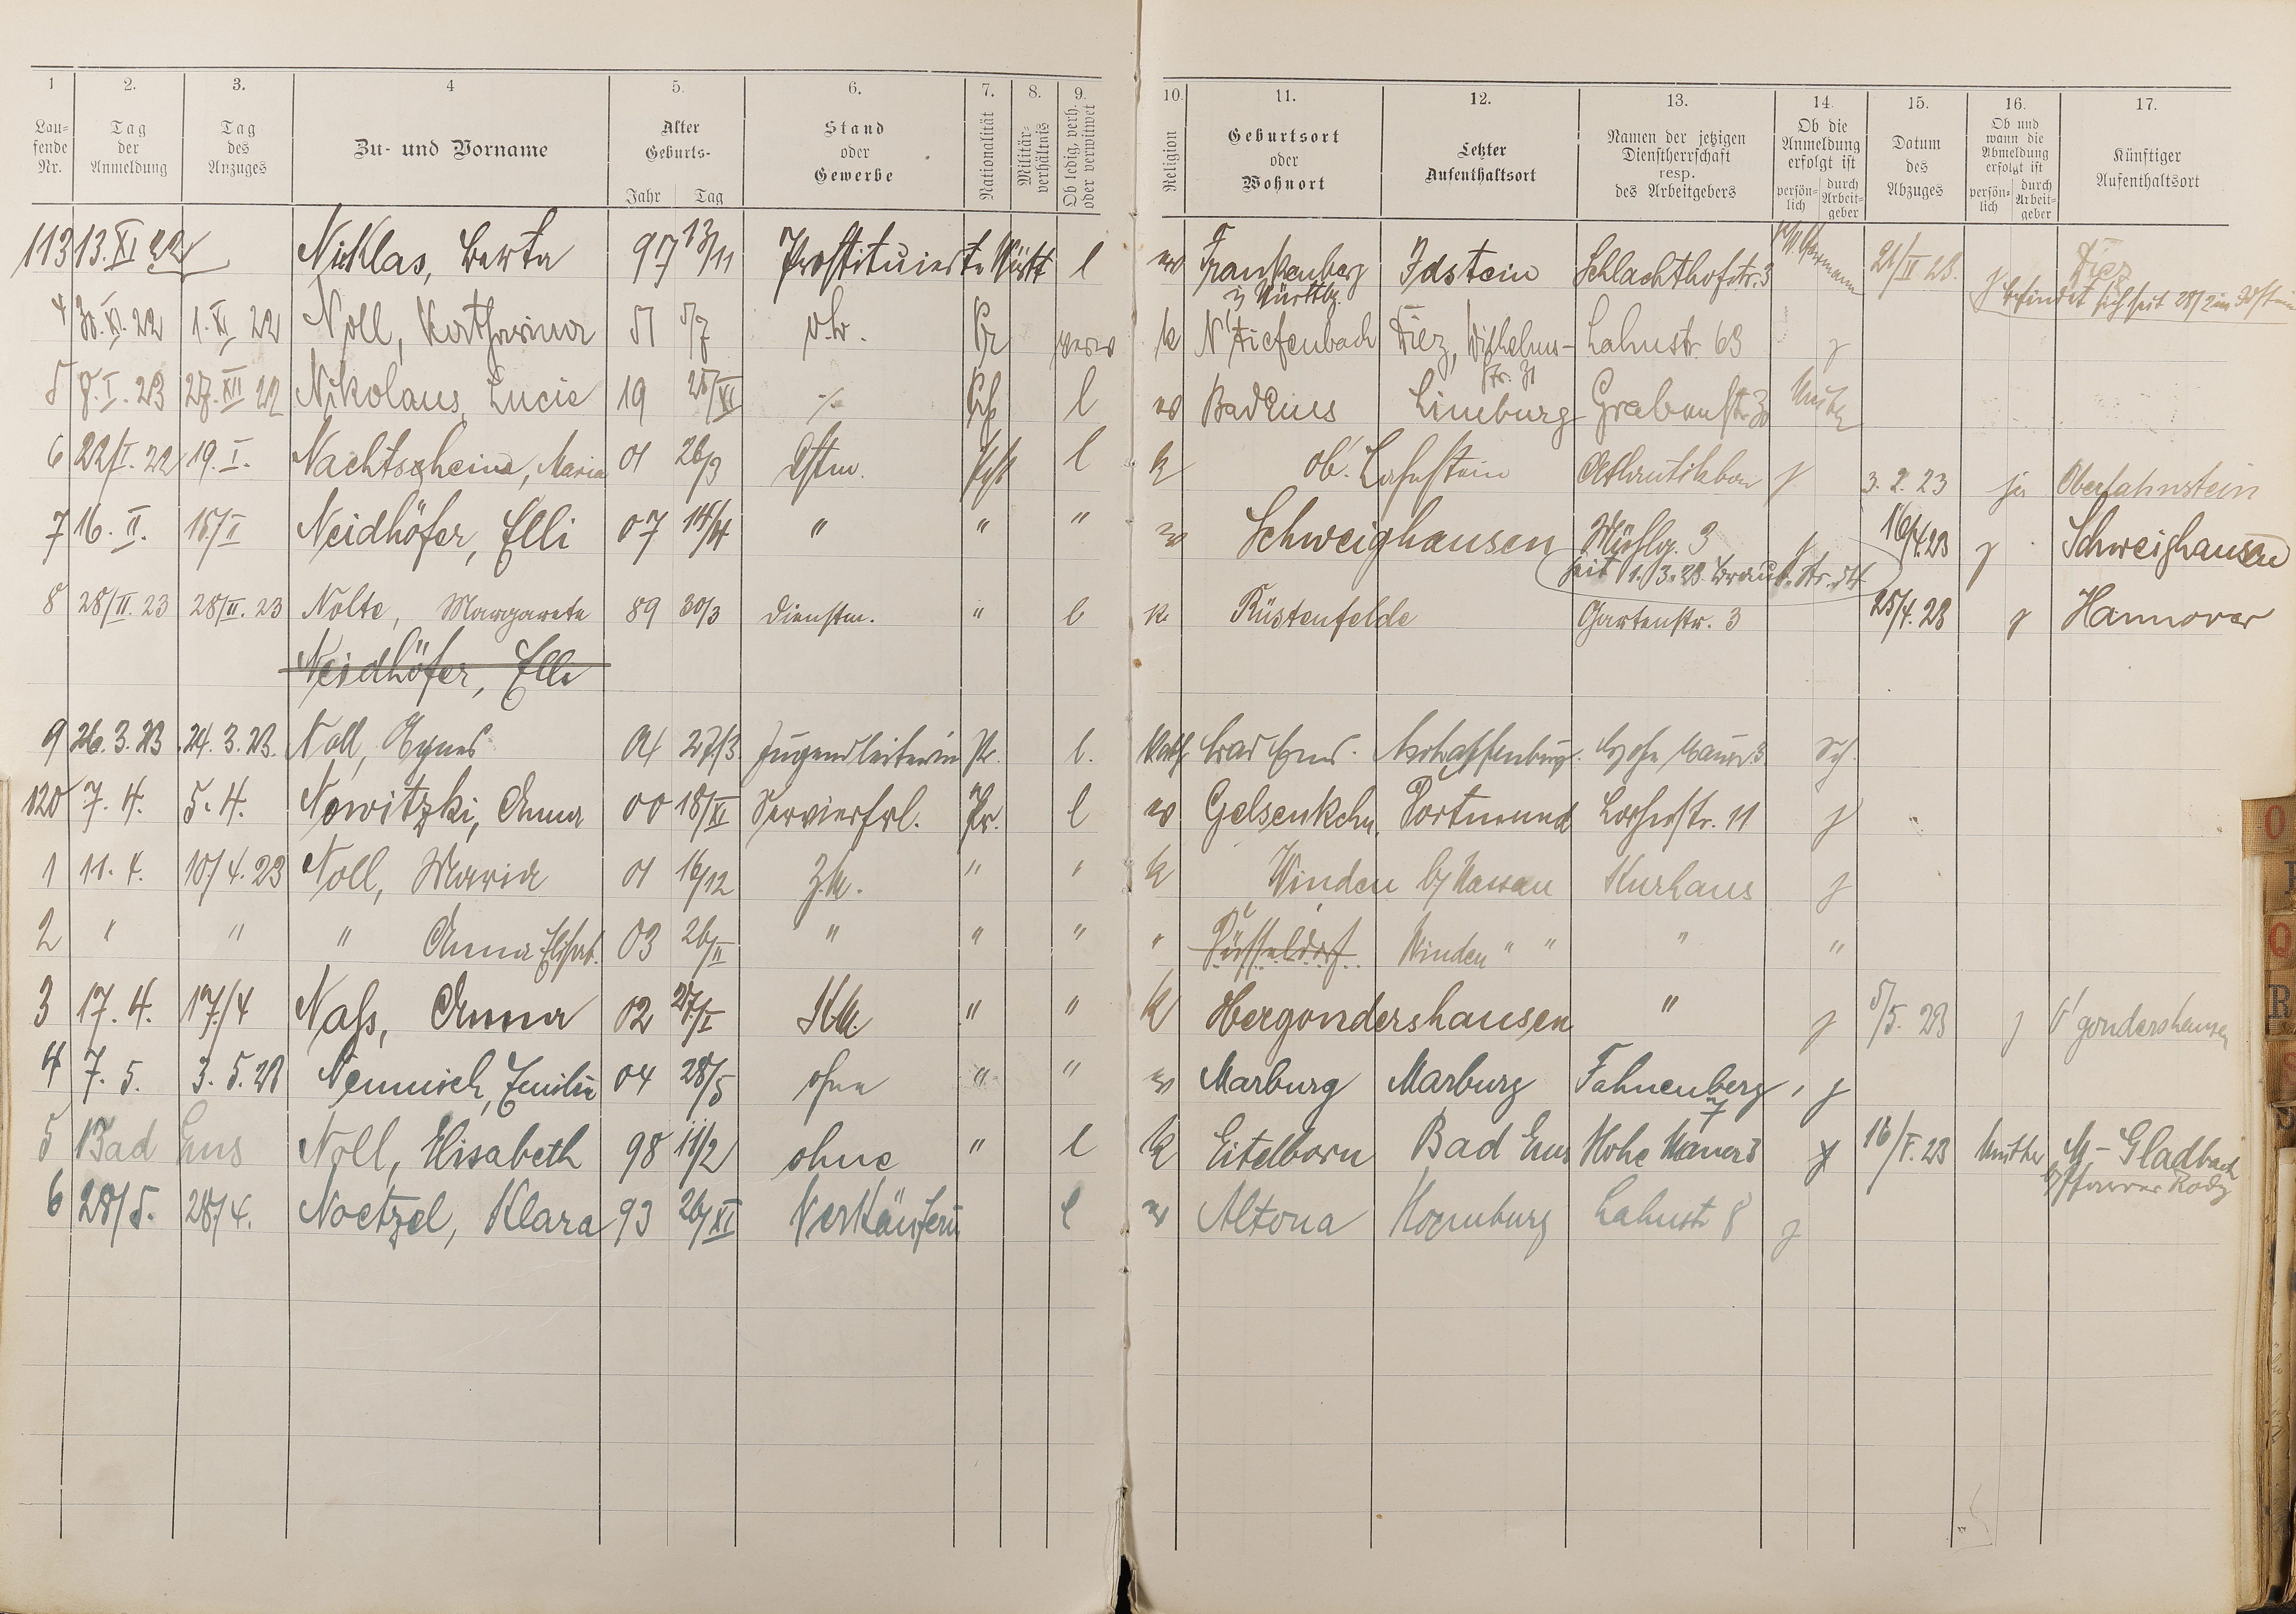 1 2. 3. 4 5. 6. 7. 8. 9. 10. 11. 12. 13. 14. 15. 16. 17.
Lau-fende Nr. Tag der Anmeldung Tag des Anzuges Zu- und Vorname Alter Geburts- Jahr Tag Stand oder Gewerbe Nationalität Militär-verhältnis Ob ledig, verh. oder verwitwet Religion Geburtsort oder Wohnort Letzter Aufenthaltsort Namen der jetzigen Dienstherrschaft resp. des Arbeitgebers Ob die Anmeldung erfolgt ist persön-lich durch Arbeit-geber Datum des Abzuges Ob und wann die Abmeldung erfolgt ist persön-lich durch Arbeit-geber Künstiger Aufenthaltsort
113 13. XI 22 Nicklas, Berta 97 13/11 Prostituierte Württ l Frankenberg Idstein Schlachthofstr. 3 21/II 23. Diez
i/ Württbg. j befindet sich seit 28/2 in Idstein
4 30. XI. 22 1. XI. 22 Noll, Katharina 51 5/7 o.b. Pr verw k N'Tiefenbach Diez, Wilhelm-Str. 31 Lahnstr. 63 j
5 8. I. 23 27. XII 22 Nikolaus, Lucie 19 25/XI ./. l Bad Ems Limburg Grabenstr. 30 Mutter
6 22/I. 22 19. I. Nachtsheim, Maria 01 26/3 l k ob. Lahnstein j 3. 2. 23 ja Oberlahnstein
7 16. II. 15/II Neidhöfer, Elli 07 14/4 " " " Schweighausen Mühlg. 3 j 16/4.23 j Schweighausen
seit 1. 3. 23. Braub. Str. 54
8 28/II. 23 28/II. 23 Nolte, Margarete 89 30/3 Dienstm. " l k Rüstenfelde Gartenstr. 3 25/4. 23 j Hannover
Neidhöfer, Elli
9 26. 3. 23 24. 3. 23. Noll, Agnes 27/3 Jugendleiterin Pr. l. Kath Bad Ems. Aschaffenburg. Hohe Mauer 3
120 7. 4. 5. 4. Nowitzki, Anna 00 18/XI Servierfrl. Pr. l Gelsenkchn. Dortmund 11 j
1 11. 4. 10/4. 23 Noll, Maria 01 16/12 Z.M. " " k Winden b/ Nassau Kurhaus j
2 " " " Anna Elisab. 03 26/II " " " " Düsseldorf Winden " " " "
3 17. 4. 17./4 Nass, Anna 02 27/I " " k Obergondershausen " j 5/5. 23 j O'gondershausen
4 7. 5. 3. 5. 23 Nemnich, Emilie 04 28/5 ohne " " Marburg Marburg Fahnenberg 7 j
5 Bad Ems Noll, Elisabeth 98 11/2 ohne " l k Eitelborn Bad Ems Hohe Mauer 3 j 16/V. 23 Mutter M-Gladbach
b/ Pfarrer Rody
6 28/5. 28/4. Noetzel, Klara 93 26/XI Verkäuferin l Altona Lahnstr 8 j
O
Q
R
S